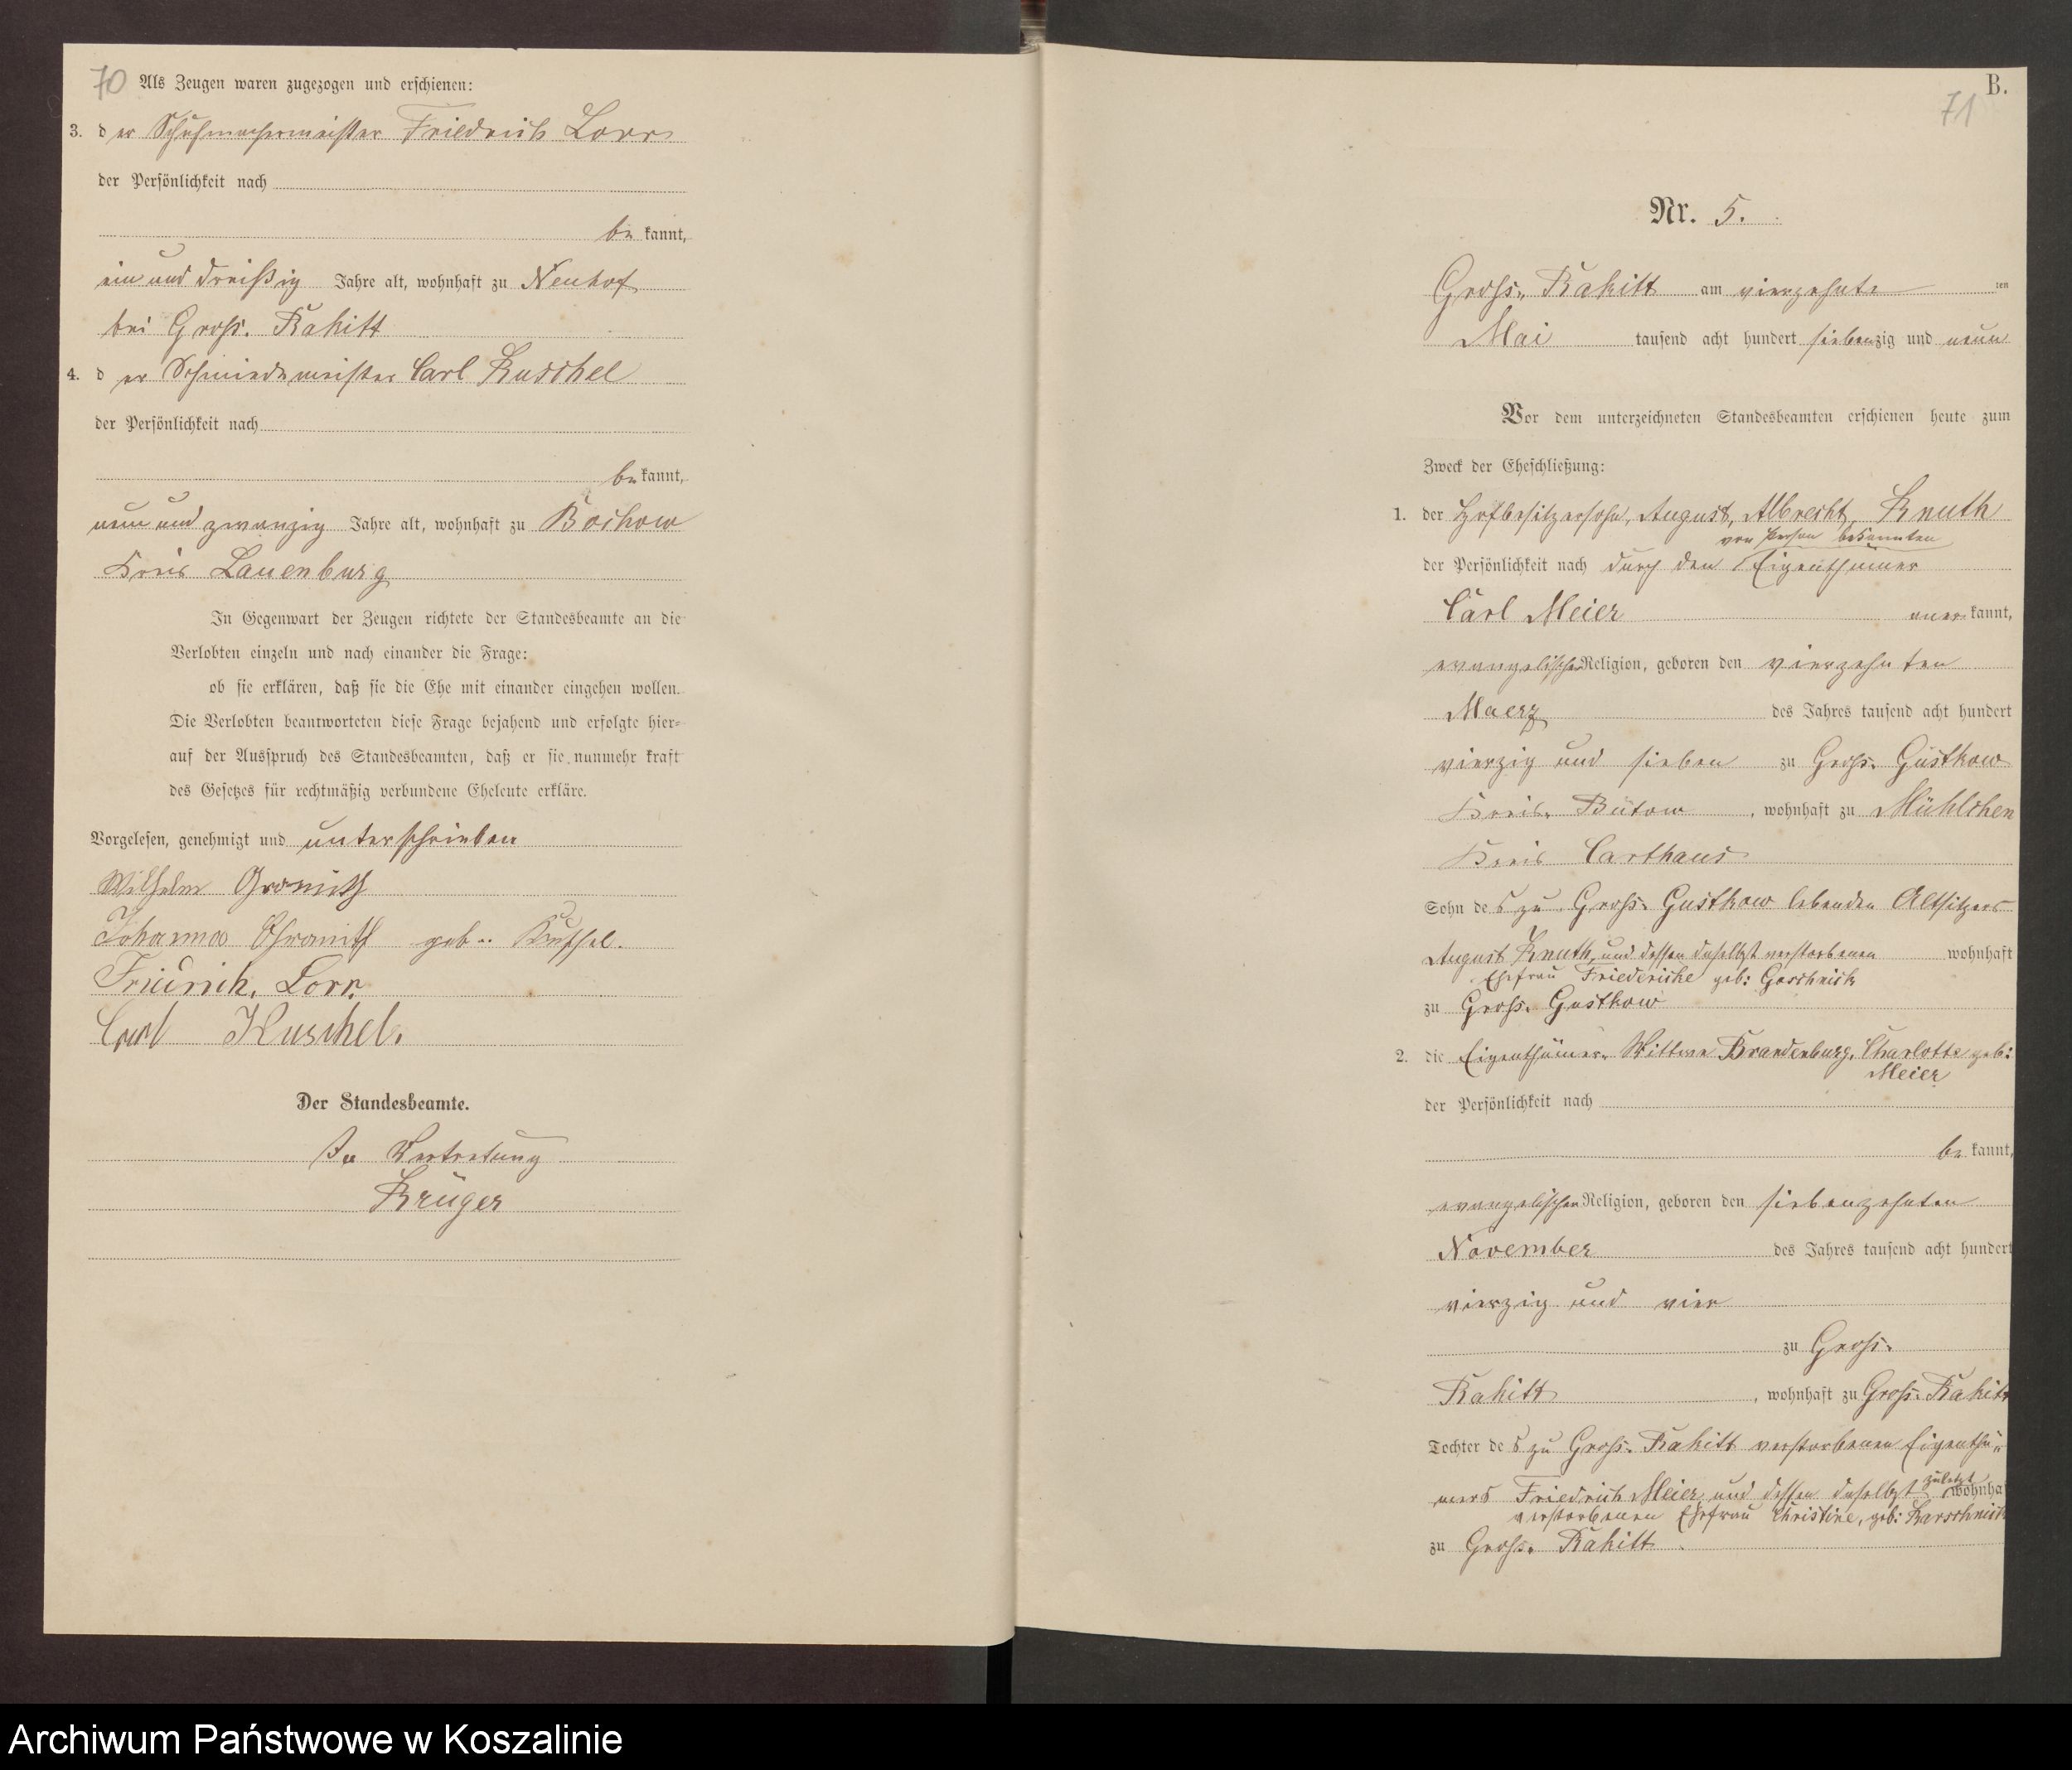 70 Als Zeugen waren zugezogen und erschienen:
3. der Schuhmachermeister Friedrich Lorr
der Persönlichkeit nach
be kannt,
ein und dreißig Jahre alt, wohnhaft zu Neuhof
bei Gross. Rakitt
4. d er Schmiedemeister Carl Kuschel
der Persönlichkeit nach
be kannt,
neun und zwanzig Jahre alt, wohnhaft zu Bochow
Kreis Lauenburg
In Gegenwart der Zeugen richtete der Standesbeamte an die
Verlobten einzeln und nach einander die Frage:
ob sie erklären, daß sie die Ehe mit einander eingehen wollen.
Die Verlobten beantworteten diese Frage bejahend und erfolgte hier-
auf der Ausspruch des Standesbeamten, daß er sie nunmehr kraft
des Gesetzes für rechtmäßig verbundene Eheleute erkläre.
Vorgelesen, genehmigt und unterschrieben
Wilhelm
Johanna geb. Kuschel.
Friedrich, Lorr.
Carl Kuschel.
Der Standesbeamte.
In Vertretung
Krüger
B.
71
Nr. 5.
Gross. Rakitt am vierzehnte ten
Mai tausend acht hundert siebenzig und neun
Vor dem unterzeichneten Standesbeamten erschienen heute zum
Zweck der Eheschließung:
1. der Hofbesitzersohn, August, Albrecht, Knuth
von Person bekannten
der Persönlichkeit nach durch den Eigenthümer
Carl Meier aner kannt,
evangelischer Religion, geboren den vierzehnten
Maerz des Jahres tausend acht hundert
vierzig und sieben zu Gross. Gustkow
Kreis. Bütow, wohnhaft zu Mühlchen
Kreis Carthaus
Sohn des zu Gross. Gustkow lebenden Altsitzers
August Knuth, und dessen daselbst verstorbenen wohnhaft
Ehefrau Friedericke geb: Goschnick
zu Gross. Gustkow
2. die Eigenthümer. Wittwe Brandenburg, Charlotte geb:
Meier
der Persönlichkeit nach
be kannt,
evangelischer Religion, geboren den siebenzehnten
November des Jahres tausend acht hundert
vierzig und vier
zu Gross.
Rakitt, wohnhaft zu Gross. Rakitt
Tochter des zu Gross. Rakitt verstorbenen Eigenthü-
mers Friedrich Meier und dessen daselbst zuletzt wohnha
verstorbenen Ehefrau Christine, geb: Karschnick
zu Gross. Rakitt.
Archiwum Państwowe w Koszalinie